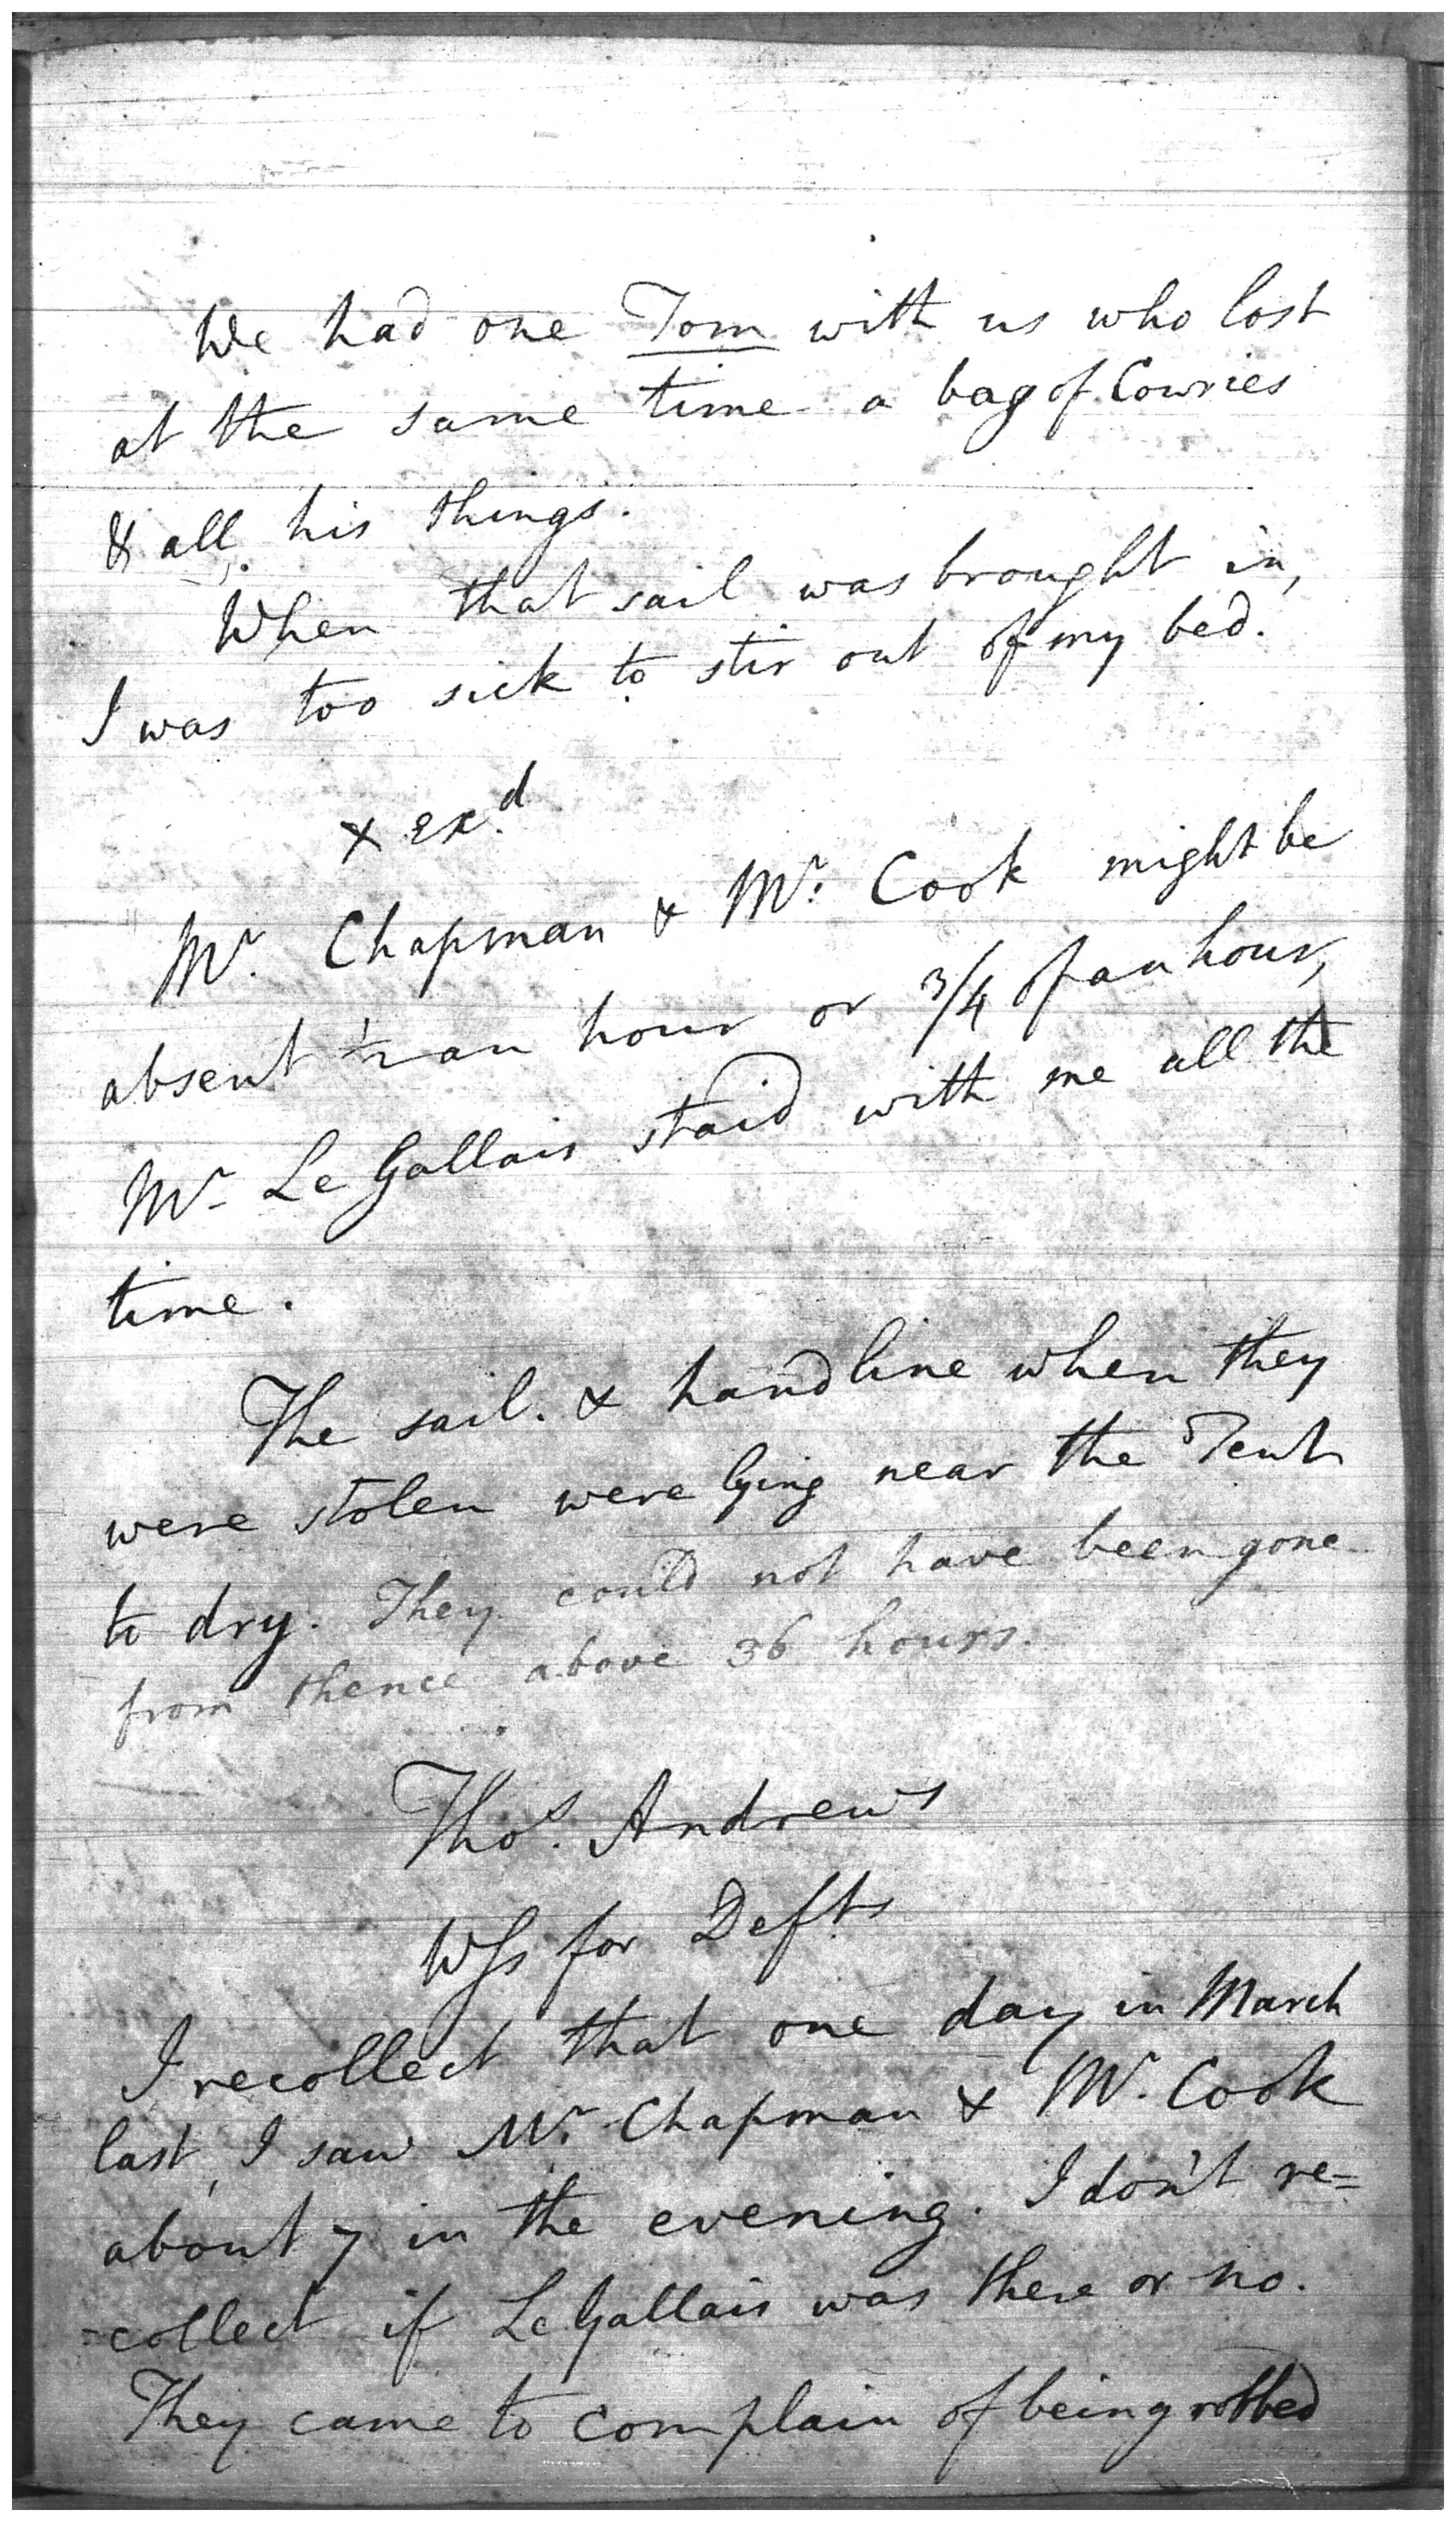 We had one Tom with us who lost
at the same time a bag of Cowries
& all his things.
When that sail was brought in,
I was too sick to stir out of my bed.
x ex.d
Mr. Chapman & Mr. Cook might be
absent 1/2 an hour or 3/4 of an hour,
Mr. Le Gallais staid with me all the
time.
The sail. & hand line when they
were stolen were lying near the Tent
to dry. They could not have been gone
from thence above 36 hours.
Thos. Andrews
Wss for Defts
I recollect that one day in March
last, I saw Mr. Chapman & Mr. Cook
about 7 in the evening. I don't re=
=collect if Le Gallais was there or no.
They came to complain of being robbed